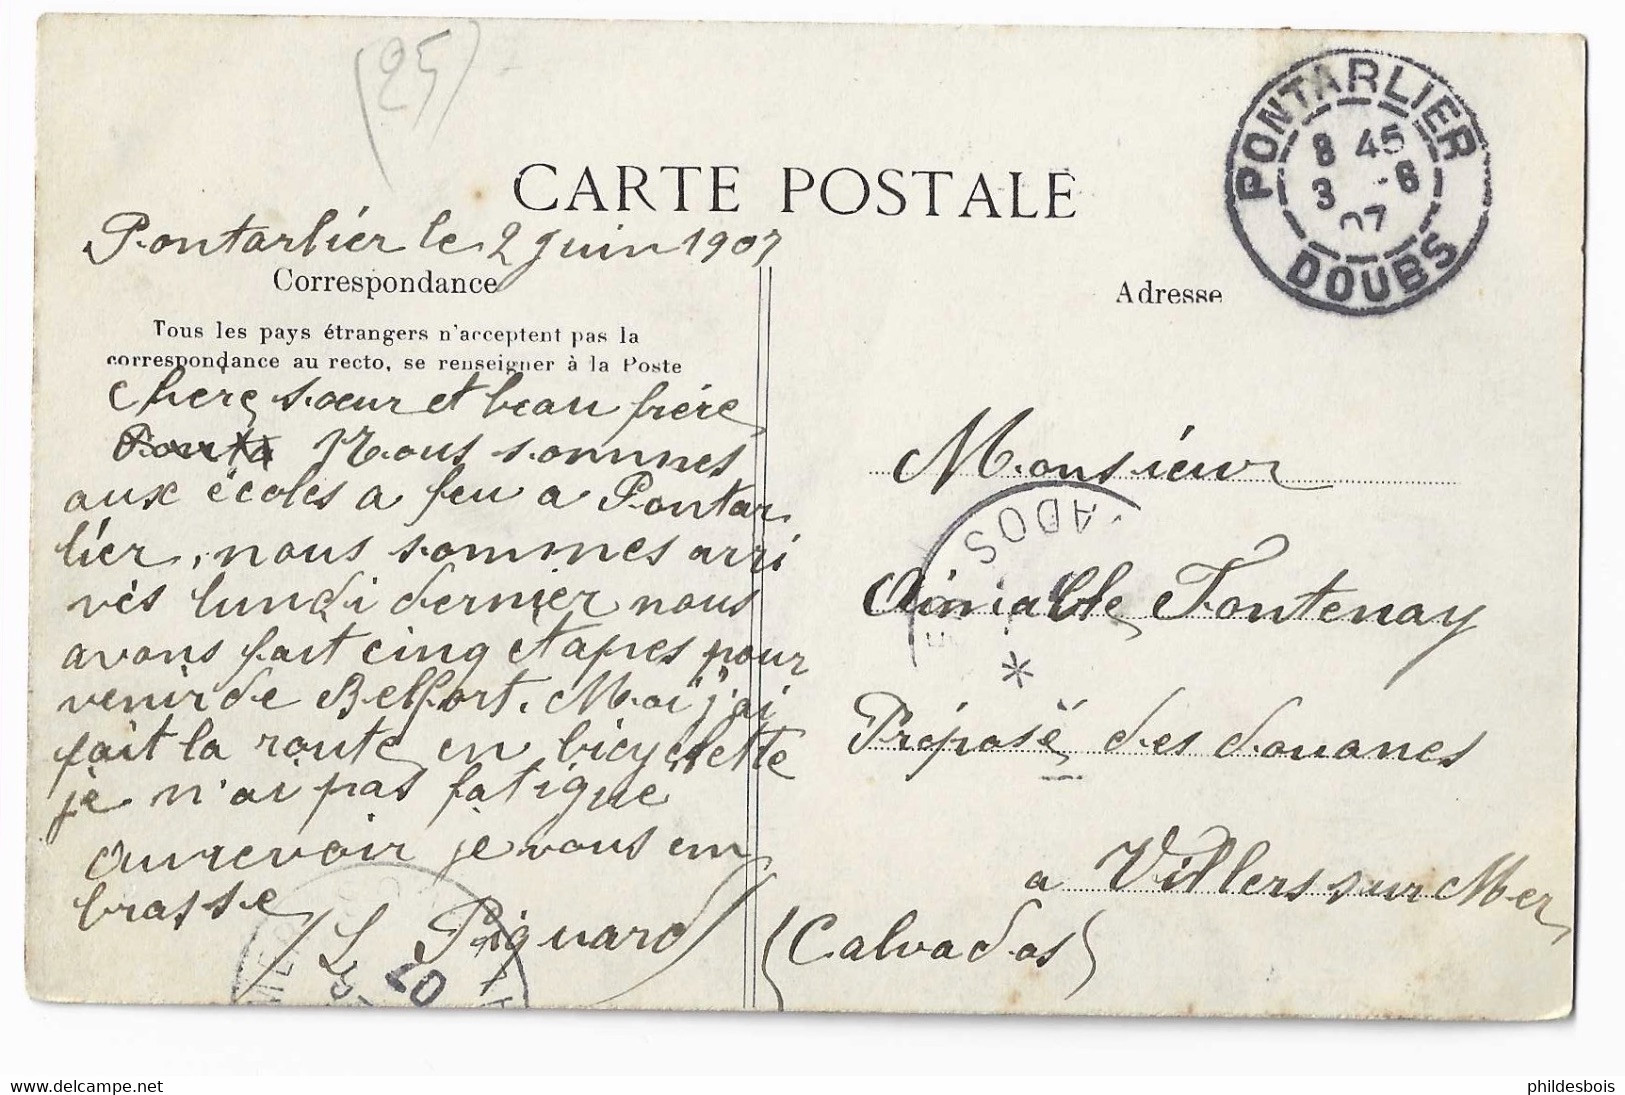 (25)
CARTE POSTALE
PONTARLIER
8 45
3 -6
07
DOUBS
Pontarlier le 2 Juin 1907
Correspondance
Tous les pays étrangers n'acceptent pas la
correspondance au recto, se renseigner à la Poste
Chere sœur et beau frère
Ponta Nous sommes
aux écoles a feu a Pontar
lier, nous sommes arri
vés lundi dernier nous
avons fait cinq etapes pour
venir de Belfort. Moi j'ai
fait la route en bicyclette
je n'ai pas fatigué
aurevoir je vous em
brasse
L Piquard
Adresse
Monsieur
Aimable Fontenay
Préposé des douanes
a Villers sur Mer
(Calvados)
ADOS
MER
07
www.delcampe.net
phildesbois